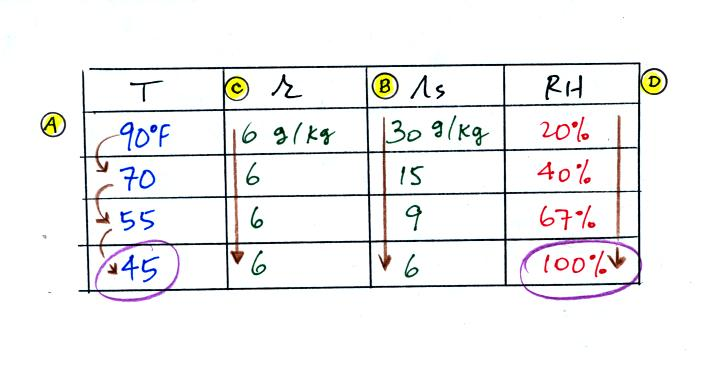 T C r B rs RH D
A 90°F 6 g/kg 30 g/kg 20%
70 6 15 40%
55 6 9 67%
45 6 6 100%